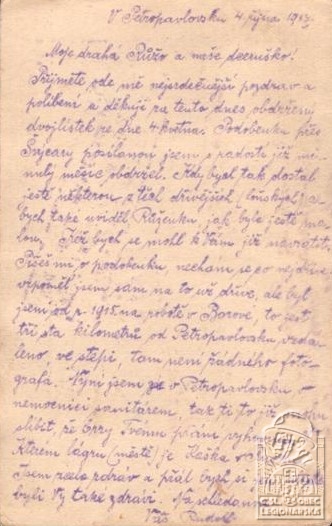 V Petropavlovsku 4. října 191
Moje drahá Růžo a naše dceruško!
Přijmete ode mě nejsrdečnější pozdrav a
políbení a děkuji za tento dnes obdržený
dvojlístek ze dne 4 května. Podobenku přes
Švýcary posílanou jsem s radostí již mi-
nulý měsíc obdržel. Kdybych tak dostal
ještě některou z těch dřívějších (loňských) a
bych také uviděl Růženku jak byla ještě ma-
lou. Též bych se mohl k Vám již navrátiti.
Píšeš mi o podobenku, nechám se co nejdříve
vzpomněl jsem sám na to už dříve, ale byl
jsem od r. 1915 na robotě v Borové, to jest
tři sta kilometrů od Petropavlovsku vzdá-
leno, ve stepi, tam není žádného foto-
grafa. Nyní jsem v Petropavlovsku
nemocnici sanitárem, tak ti to již
slíbit, že brzy Tvému přání
Kterém lágru (městě) je
Jsem zcela zdráv a přál bych si
byli Vy také zdrávi. Na shledanou
Váš Rudolf
ČESKOSLOVENSKÁ OBEC
LEGIONÁŘSKÁ